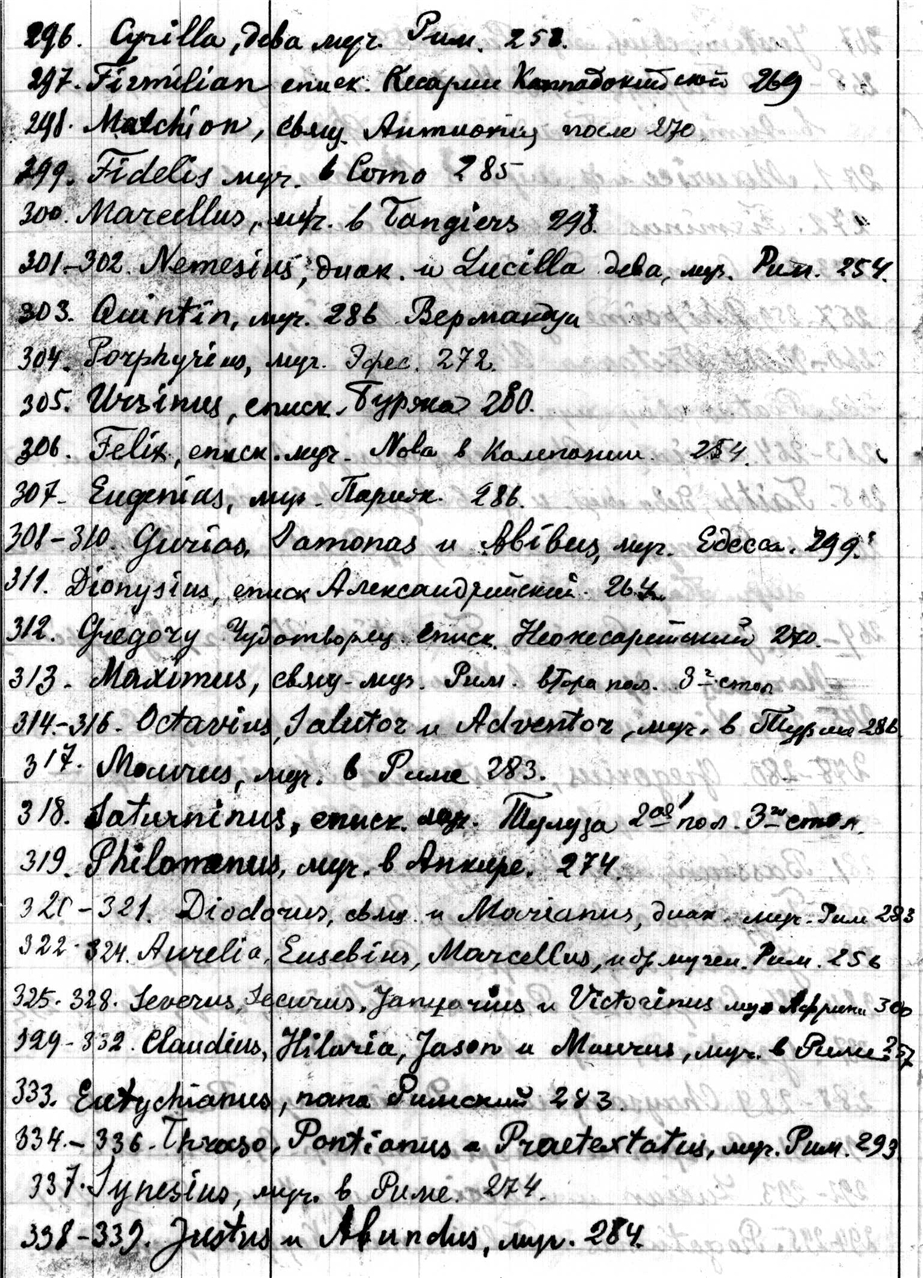 296. Cyrilla, дева муч. Рим. 258.
297. Firmilian еписк. Кесарии Каппадокийской 269
298. Malchion, свящ. Антиохия, после 270
299. Fidelis муч. в Como 285
300. Marcellus, муч. в Tangiers 298.
301-302. Nemesius, диак. и Lucilla дева, муч. Рим. 254.
303. Quintin, муч. 286 Вермандуа
304. Porphyrius, муч. Эфес. 272.
305. Ursinus, еписк. Буржа 280.
306. Felix, еписк. муч. Nola в Кампании. 254.
307. Eugenius, муч. Париж. 286.
308-310. Gurias, Samonas и Abibus, муч. Едесса. 299.
311. Dionysius, еписк Александрийский. 264.
312. Gregory Чудотворец. еписк. Неокесарийский 270.
313. Maximus, свящ.-муч. Рим. втора пол. 3го стол
314.-316. Octavius, Salutor и Adventor, муч. в Турине 286.
317. Maurus, муч. в Риме 283.
318. Saturninus, еписк. муч. Тулуза 2ая пол. 3го стол.
319. Philomenus, муч. в Анкире. 274.
320-321. Diodorus, свящ. и Marianus, диак. муч. Рим 283
322-324. Aurelia, Eusebius, Marcellus, и др мучен. Рим. 256
325-328. Severus, Securus, Januarius и Victorinus муч Африки 300
329-332. Claudius, Hilaria, Jason и Maurus, муч. в Риме 257
333. Eutychianus, папа Римский 283.
334.-336. Thraso, Pontianus и Praetextatus, муч. Рим. 293.
337. Synesius, муч. в Риме. 274.
338-339. Justus и Abundus, муч. 284.